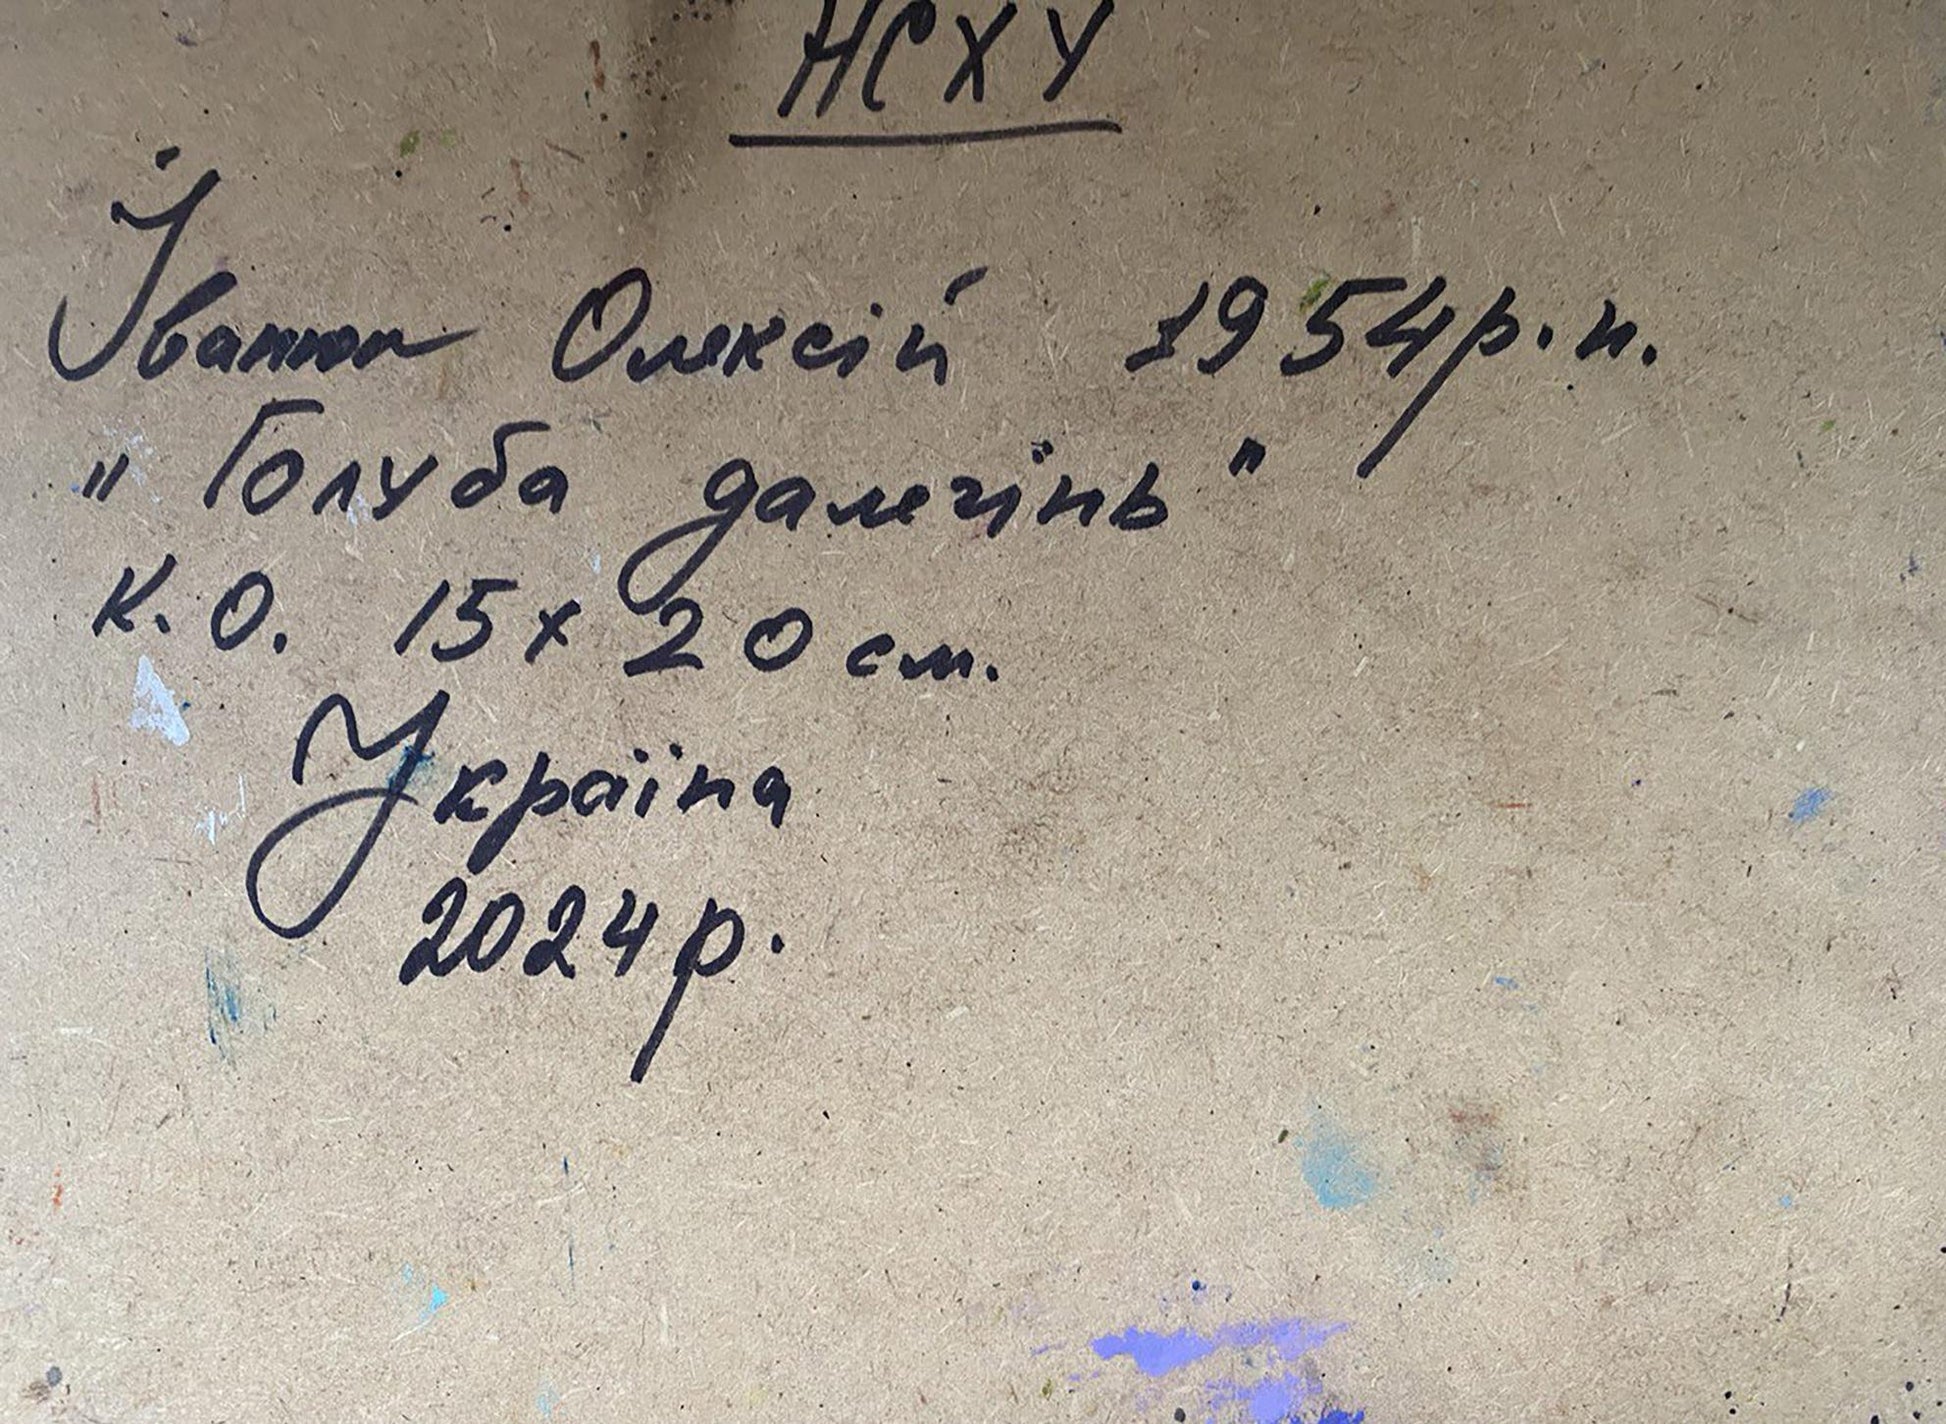 НСХУ
Іванюк Олексій 1954р.н.
"Голуба далечінь"
К.О. 15х20см.
Україна
2024р.